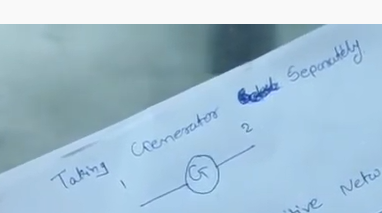 Taking Generator Separately
1 G 2